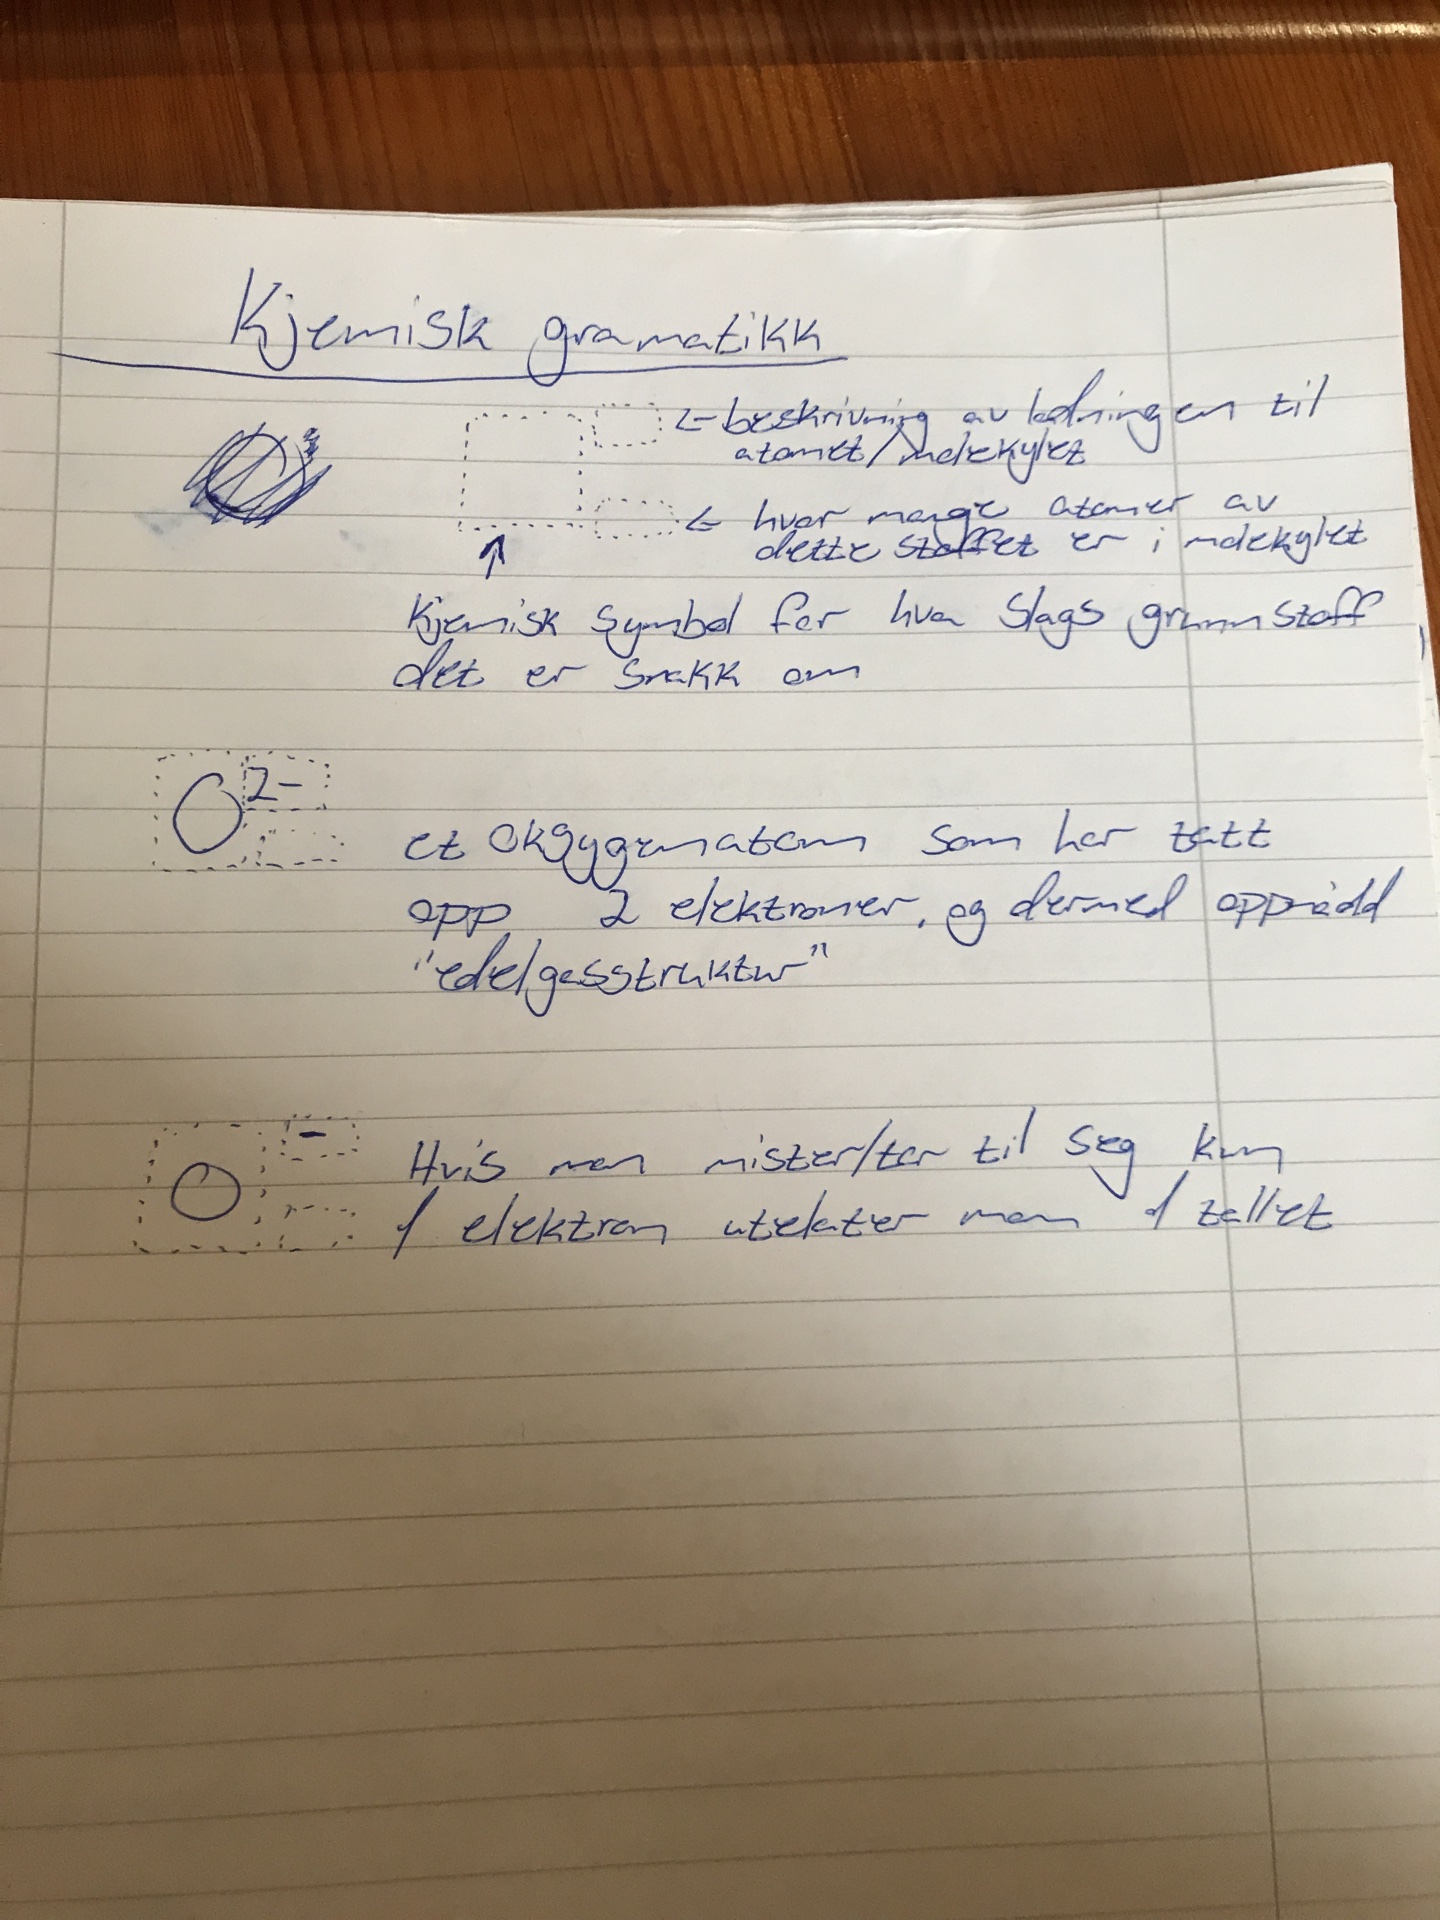 Kjemisk gramatikk
<- beskrivning av ladningen til
atomet/molekylet
<- hvor mange atomer av
dette stoffet er i molekylet
↑
Kjemisk symbol for hva slags grunnstoff
det er snakk om
O 2-
et oksygenatom som har tatt
opp 2 elektroner, og dermed oppnådd
"edelgasstruktur"
O -
Hvis man mister/tar til seg kun
1 elektron utelater man 1 tallet